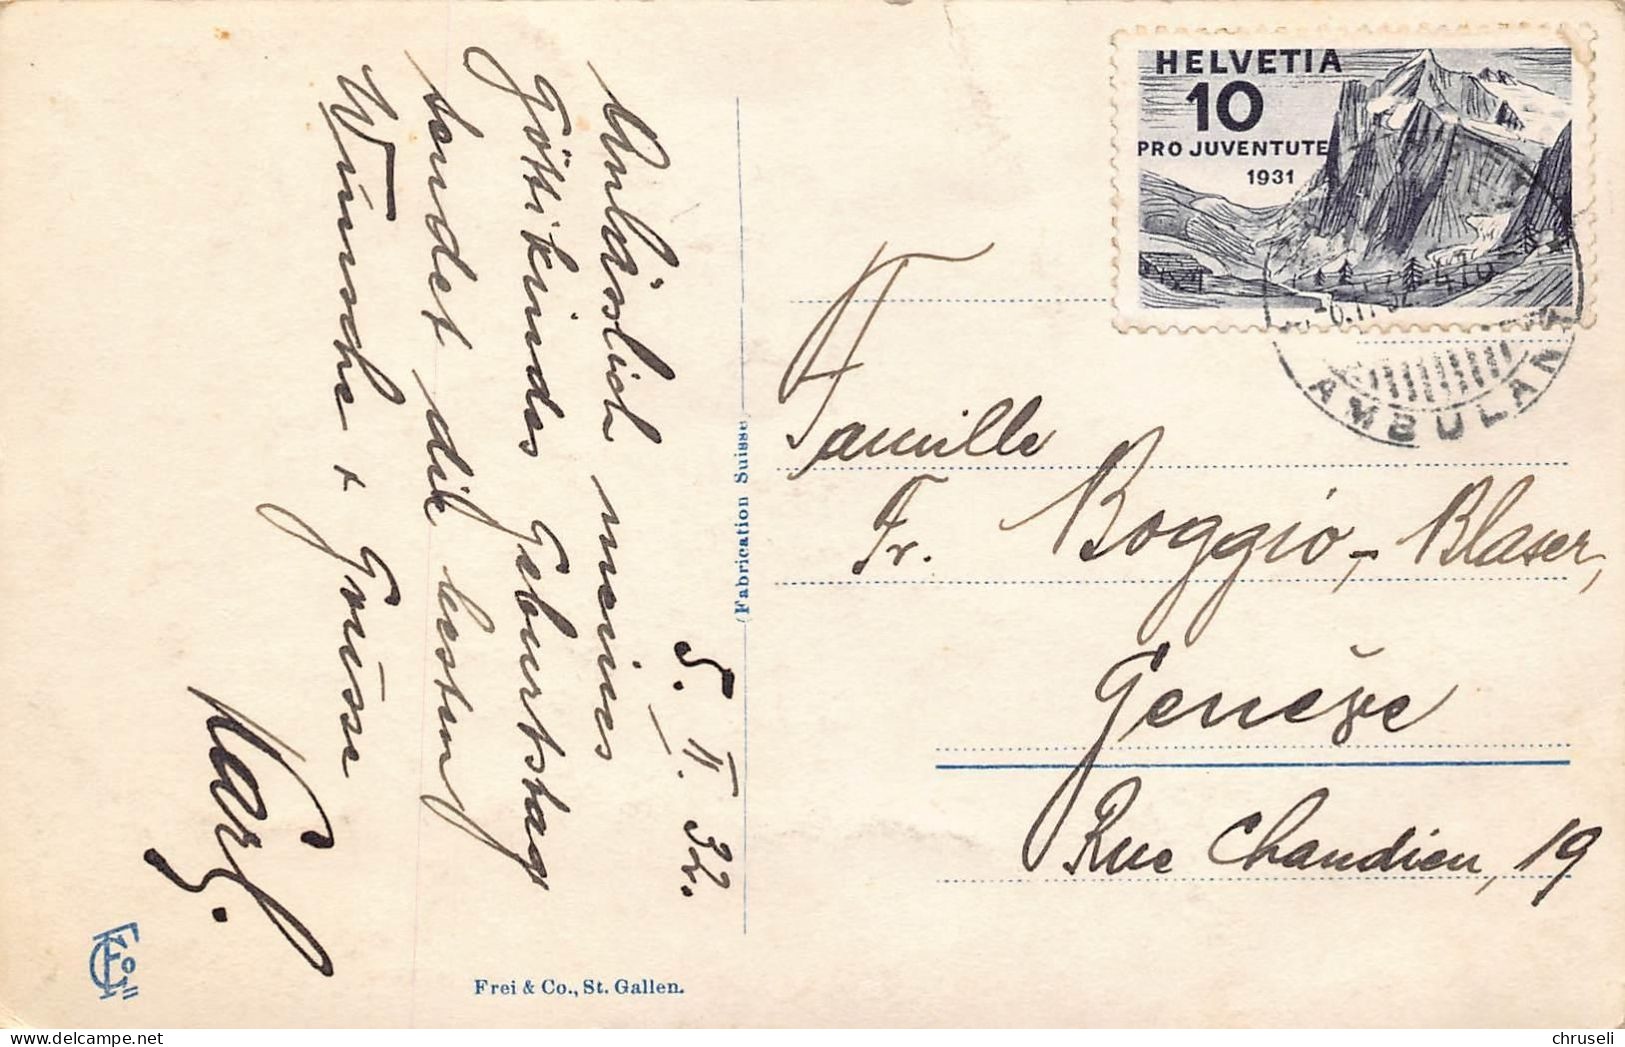 HELVETIA
10
PRO JUVENTUTE
1931
AMBULANT
5. II. 32.
Anlässlich meines
Göttikindes Geburtstag
sendet die besten
Wünsche + Grüsse
Karl.
Famille
Fr. Boggio-Blaser,
Genève
Rue Chandieu, 19
(Fabrication Suisse)
Frei & Co., St. Gallen.
chruseli